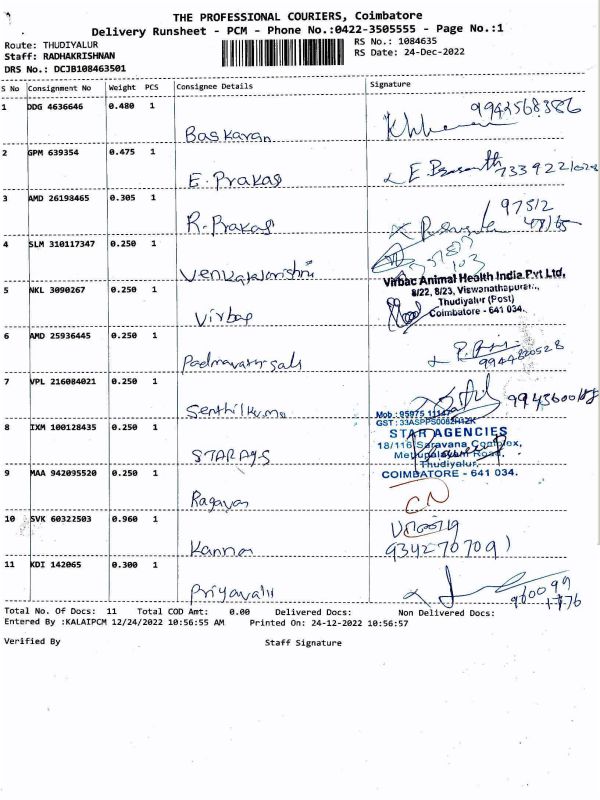 THE PROFESSIONAL COURIERS, Coimbatore
Delivery Runsheet - PCM - Phone No.:0422-3505555 - Page No.:1
Route: THUDIYALUR
RS No.: 1084635
Staff: RADHAKRISHNAN
RS Date: 24-Dec-2022
DRS No.: DCJB108463501
S No Consignment No Weight PCS Consignee Details Signature
1 DDG 4636646 0.480 1
9942568386
Baskaran
2 GPM 639354 0.475 1
E. Prakas
3 AMD 26198465 0.305 1
97512
R. Prakas
4 SLM 310117347 0.250 1
Virbac Animal Health India Pvt Ltd,
8/22, 8/23, Viswanathapuram,
5 NKL 3090267 0.250 1
Thudiyalur (Post)
Coimbatore - 641 034.
Virbac
6 AMD 25936445 0.250 1
9944820528
7 VPL 216084021 0.250 1
Senthilkuma
Mob : 95975
8 IXM 100128435 0.250 1
STAR AGENCIES
18/116 Saravana Complex,
Mettupalayam Road,
STAR AGS
Thudiyalur,
9 MAA 942095520 0.250 1
COIMBATORE - 641 034.
Ragavan
CN
10 SVK 60322503 0.960 1
Kannan
9342707091
11 KDI 142065 0.300 1
Total No. Of Docs: 11 Total COD Amt: 0.00 Delivered Docs: Non Delivered Docs:
Entered By :KALAIPCM 12/24/2022 10:56:55 AM Printed On: 24-12-2022 10:56:57
Verified By Staff Signature